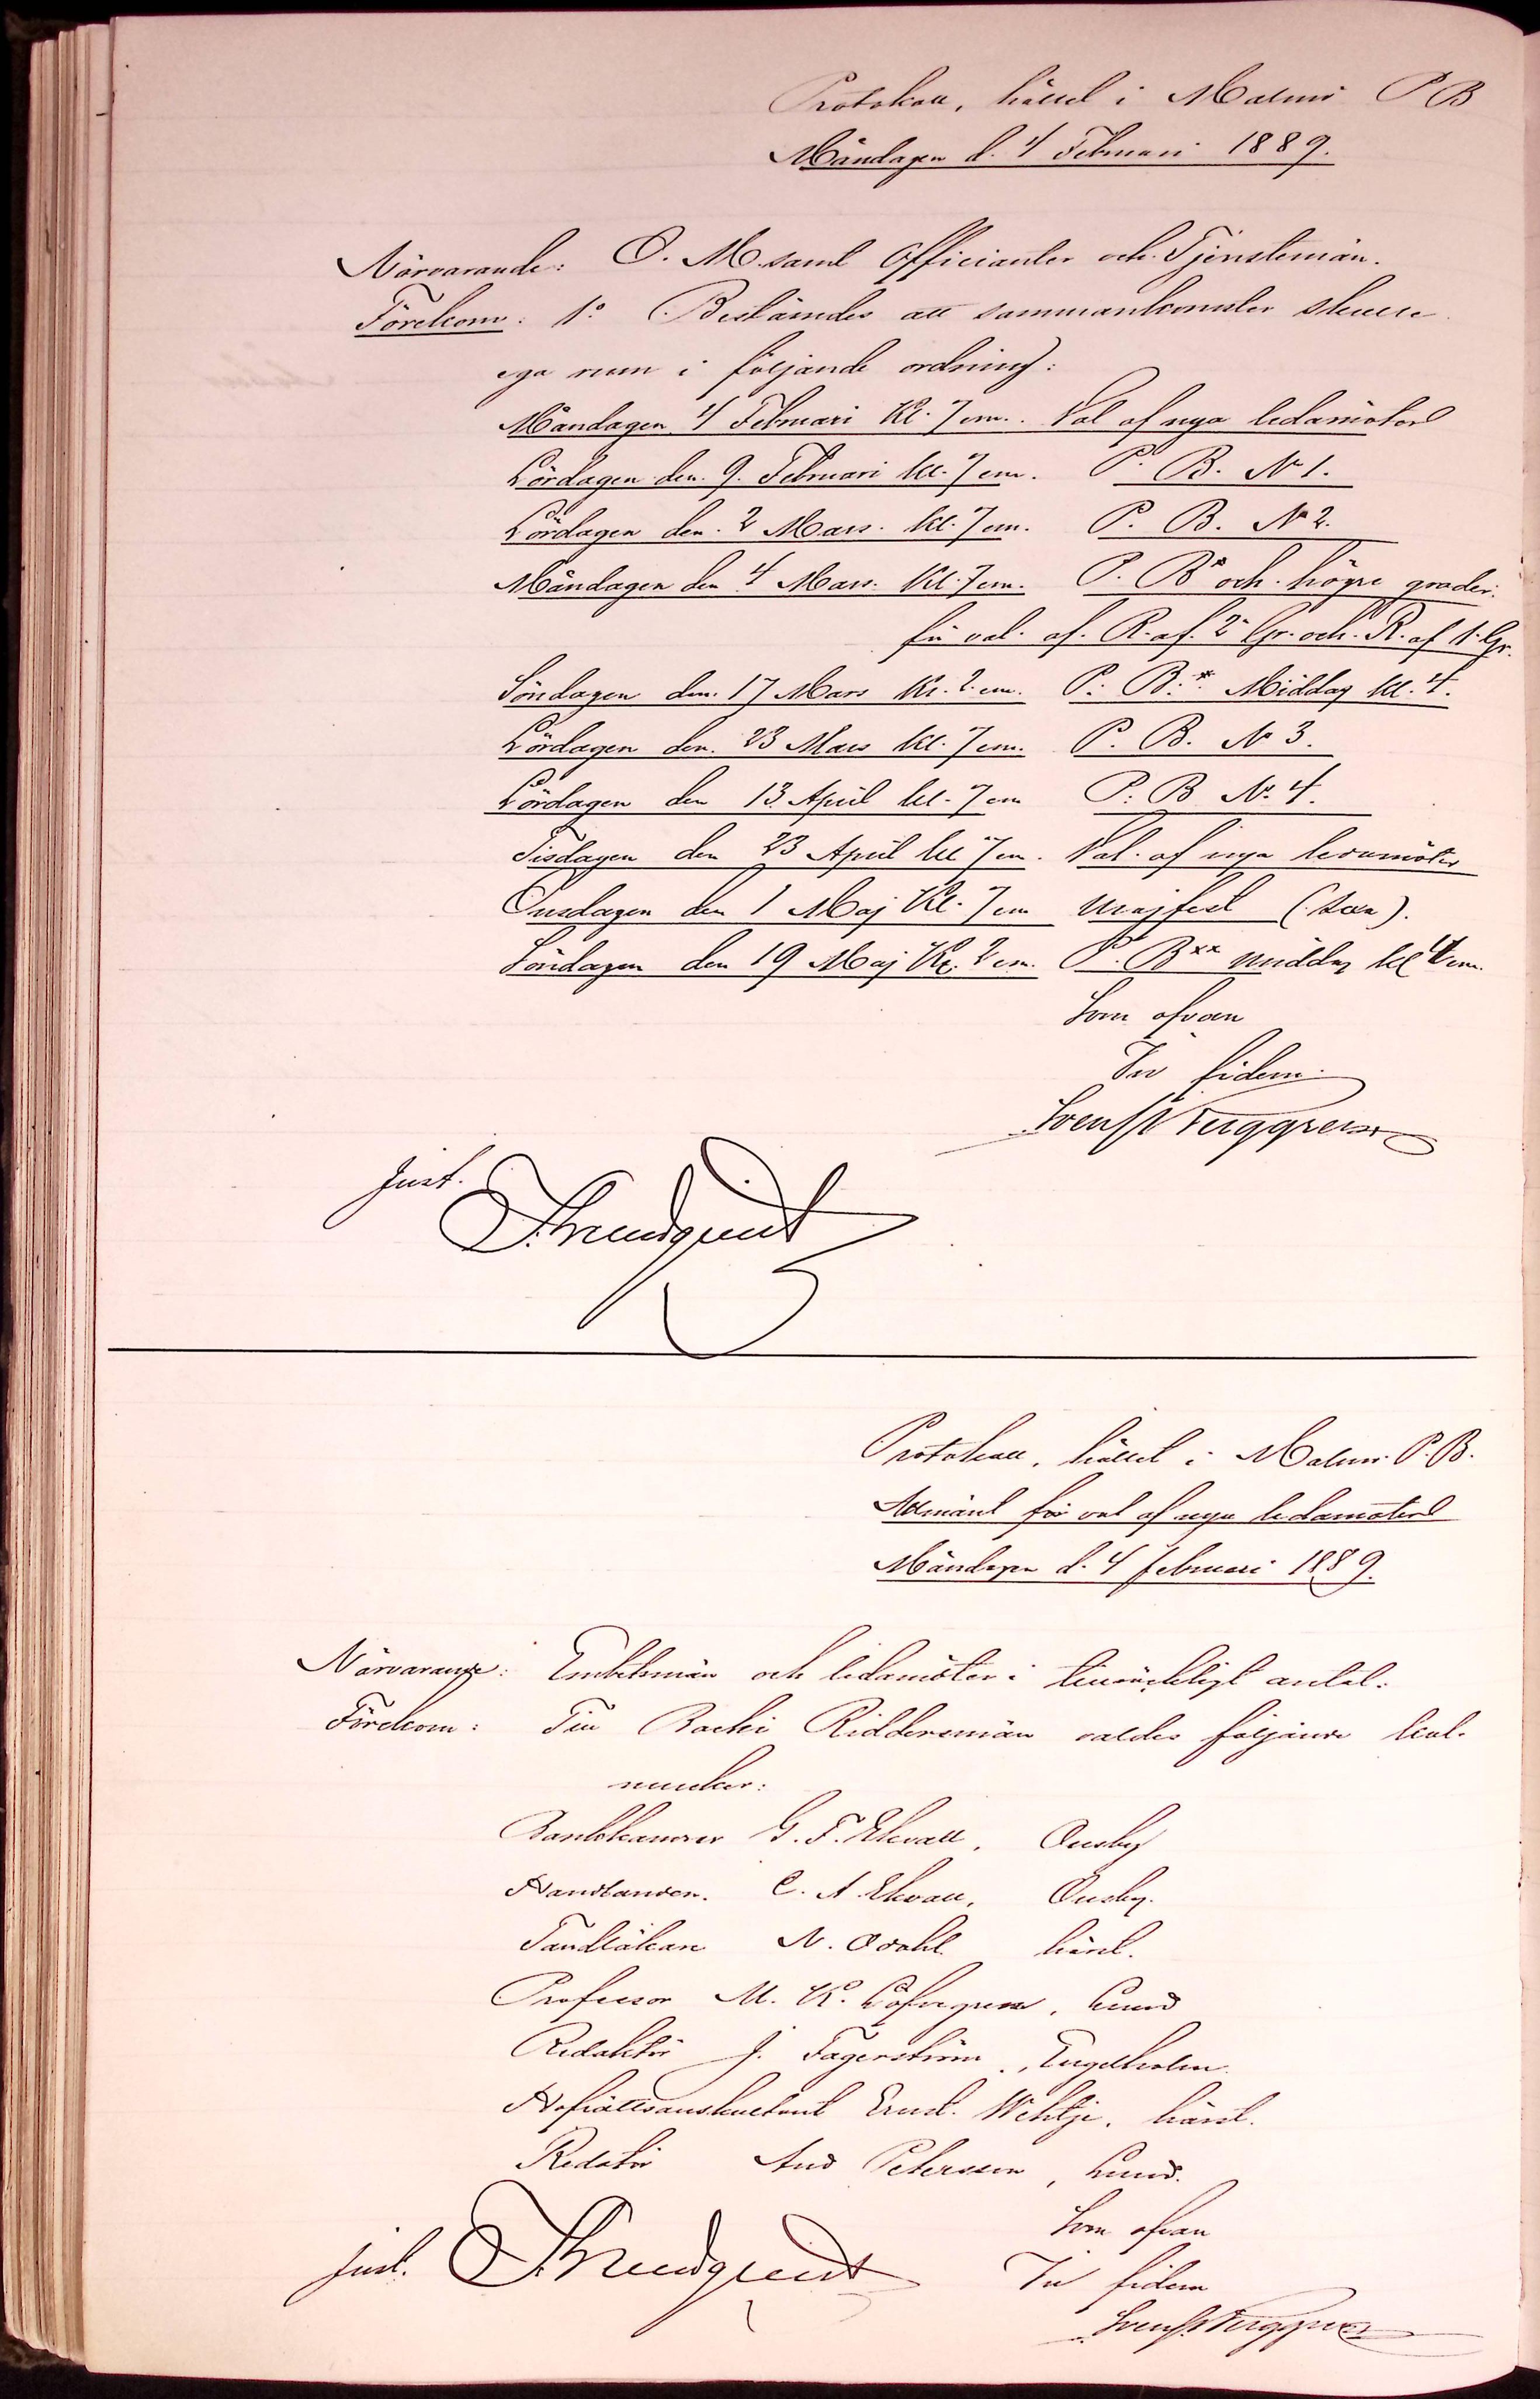 Protokoll, hållet i Malmö P B
Måndagen d. 4 Februari 1889.
Närvarande: O. M. samt Officianter och Tjenstemän.
Förekom: 1º Bestämdes att sammankomster skulle
ega rum i följande ordning:
Måndagen 4 Februari Kl. 7 em. Val af nya ledamöter
Lördagen den 9. Februari kl. 7 em. P. B. Nº 1.
Lördagen den 2 Mars. kl. 7 em. P. B. Nº 2.
Måndagen den 4 Mars. Kl. 7 em. P. B* och högre grader.
för val af R. af 2 Gr. och R. af 1. Gr.
Söndagen den 17 Mars Kl. 2 em. P. B.** Middag kl. 4.
Lördagen den 23 Mars Kl. 7 em. P. B. Nº 3.
Lördagen den 13 April kl. 7 em P. B Nº 4.
Tisdagen den 23 April kl 7 em. Val af nya ledamöter
Onsdagen den 1 Maj Kl. 7 em Majfest
Söndagen den 19 Maj Kl. 2 em. P. B** middag kl 4 em.
Som ofvan
In fidem
Just.
Protokoll, hållet i Malmö P. B.
Allmänt för val af nya ledamöter
Måndagen d. 4 februari 1889.
Närvarande: Embetsmän och ledamöter i tillräckligt antal.
Förekom: Till Bacchi Riddersmän valdes följande kal-
munker:
Bankkamrer G. F. Ekvall, Ousby
Handlanden C. A. Ekvall, Ousby.
Tandläkare N. Odahl härst.
Professor M. K. Löfvegren, Lund
Redaktör J. Fagerström, Engelholm.
Hofrättsauskultant Ernst Wehtje, härst.
Redaktör And Petersson, Lund.
Som ofvan
Just. In fidem